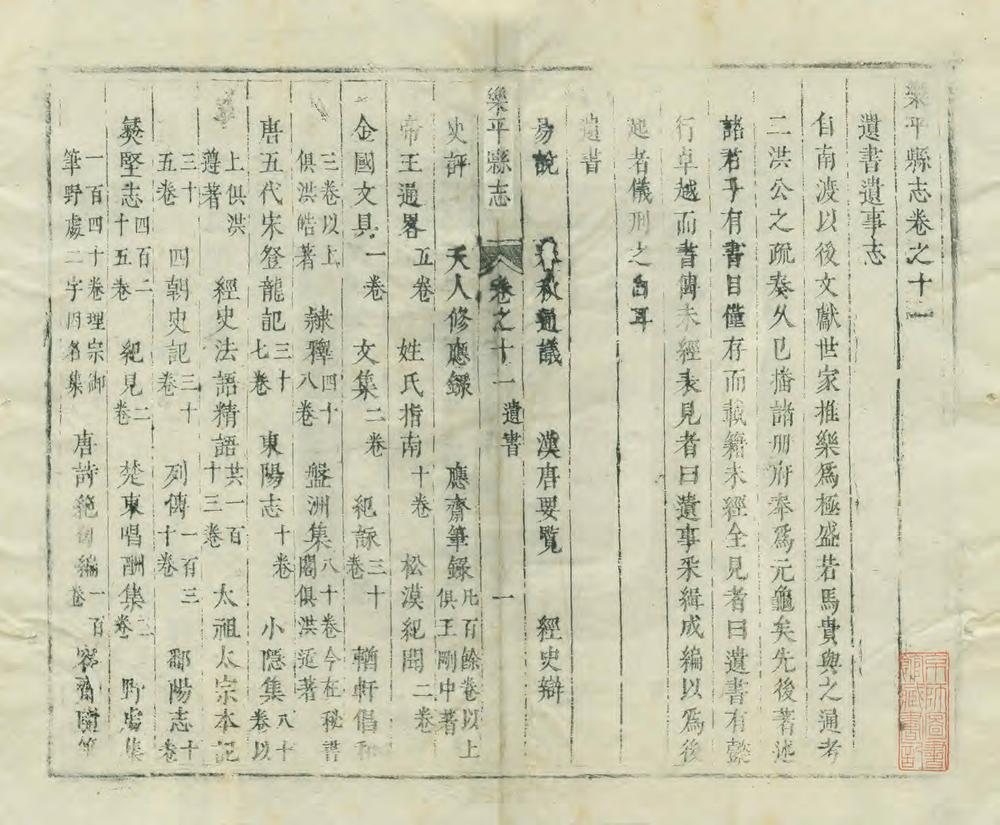 樂平縣志卷之十一
遺書遺事志
自南渡以後文獻世家推樂爲極盛若馬貴與之通考
二洪公之疏奏久已播諸册府奉爲元龜矣先後著述
諸君子有書目僅存而載籍未經全見者曰遺書有懿
行卓越而書傳未經表見者曰遺事釆緝成編以爲後
起者儀刑之自耳
遺書
易說 春秋通議 漢唐要覽 經史辯
樂平縣志 卷之十一 遺書 一
史評 天人修應錄 應齋筆錄凡百餘卷以上俱王剛中著
帝王通畧五卷 姓氏指南十卷 松漠紀聞二卷
金國文具一卷 文集二卷 紀詠三十卷 輶軒倡和
三卷以上俱洪皓著 隸釋四十八卷 盤洲集八十卷今在秘書閣俱洪适著
唐五代宋登龍記三十七卷 東陽志十卷 小隱集八十卷以
上俱洪遵著 經史法語精語共一百十三卷 太祖太宗本記
三十五卷 四朝史記三十卷 列傳一百三十卷 鄱陽志十卷
夷堅志四百二十五卷 紀見二卷 楚東唱酬集二卷 野處集
一百四十卷理宗御筆野處二字四名集 唐詩絕句編一百卷 容齋隨筆